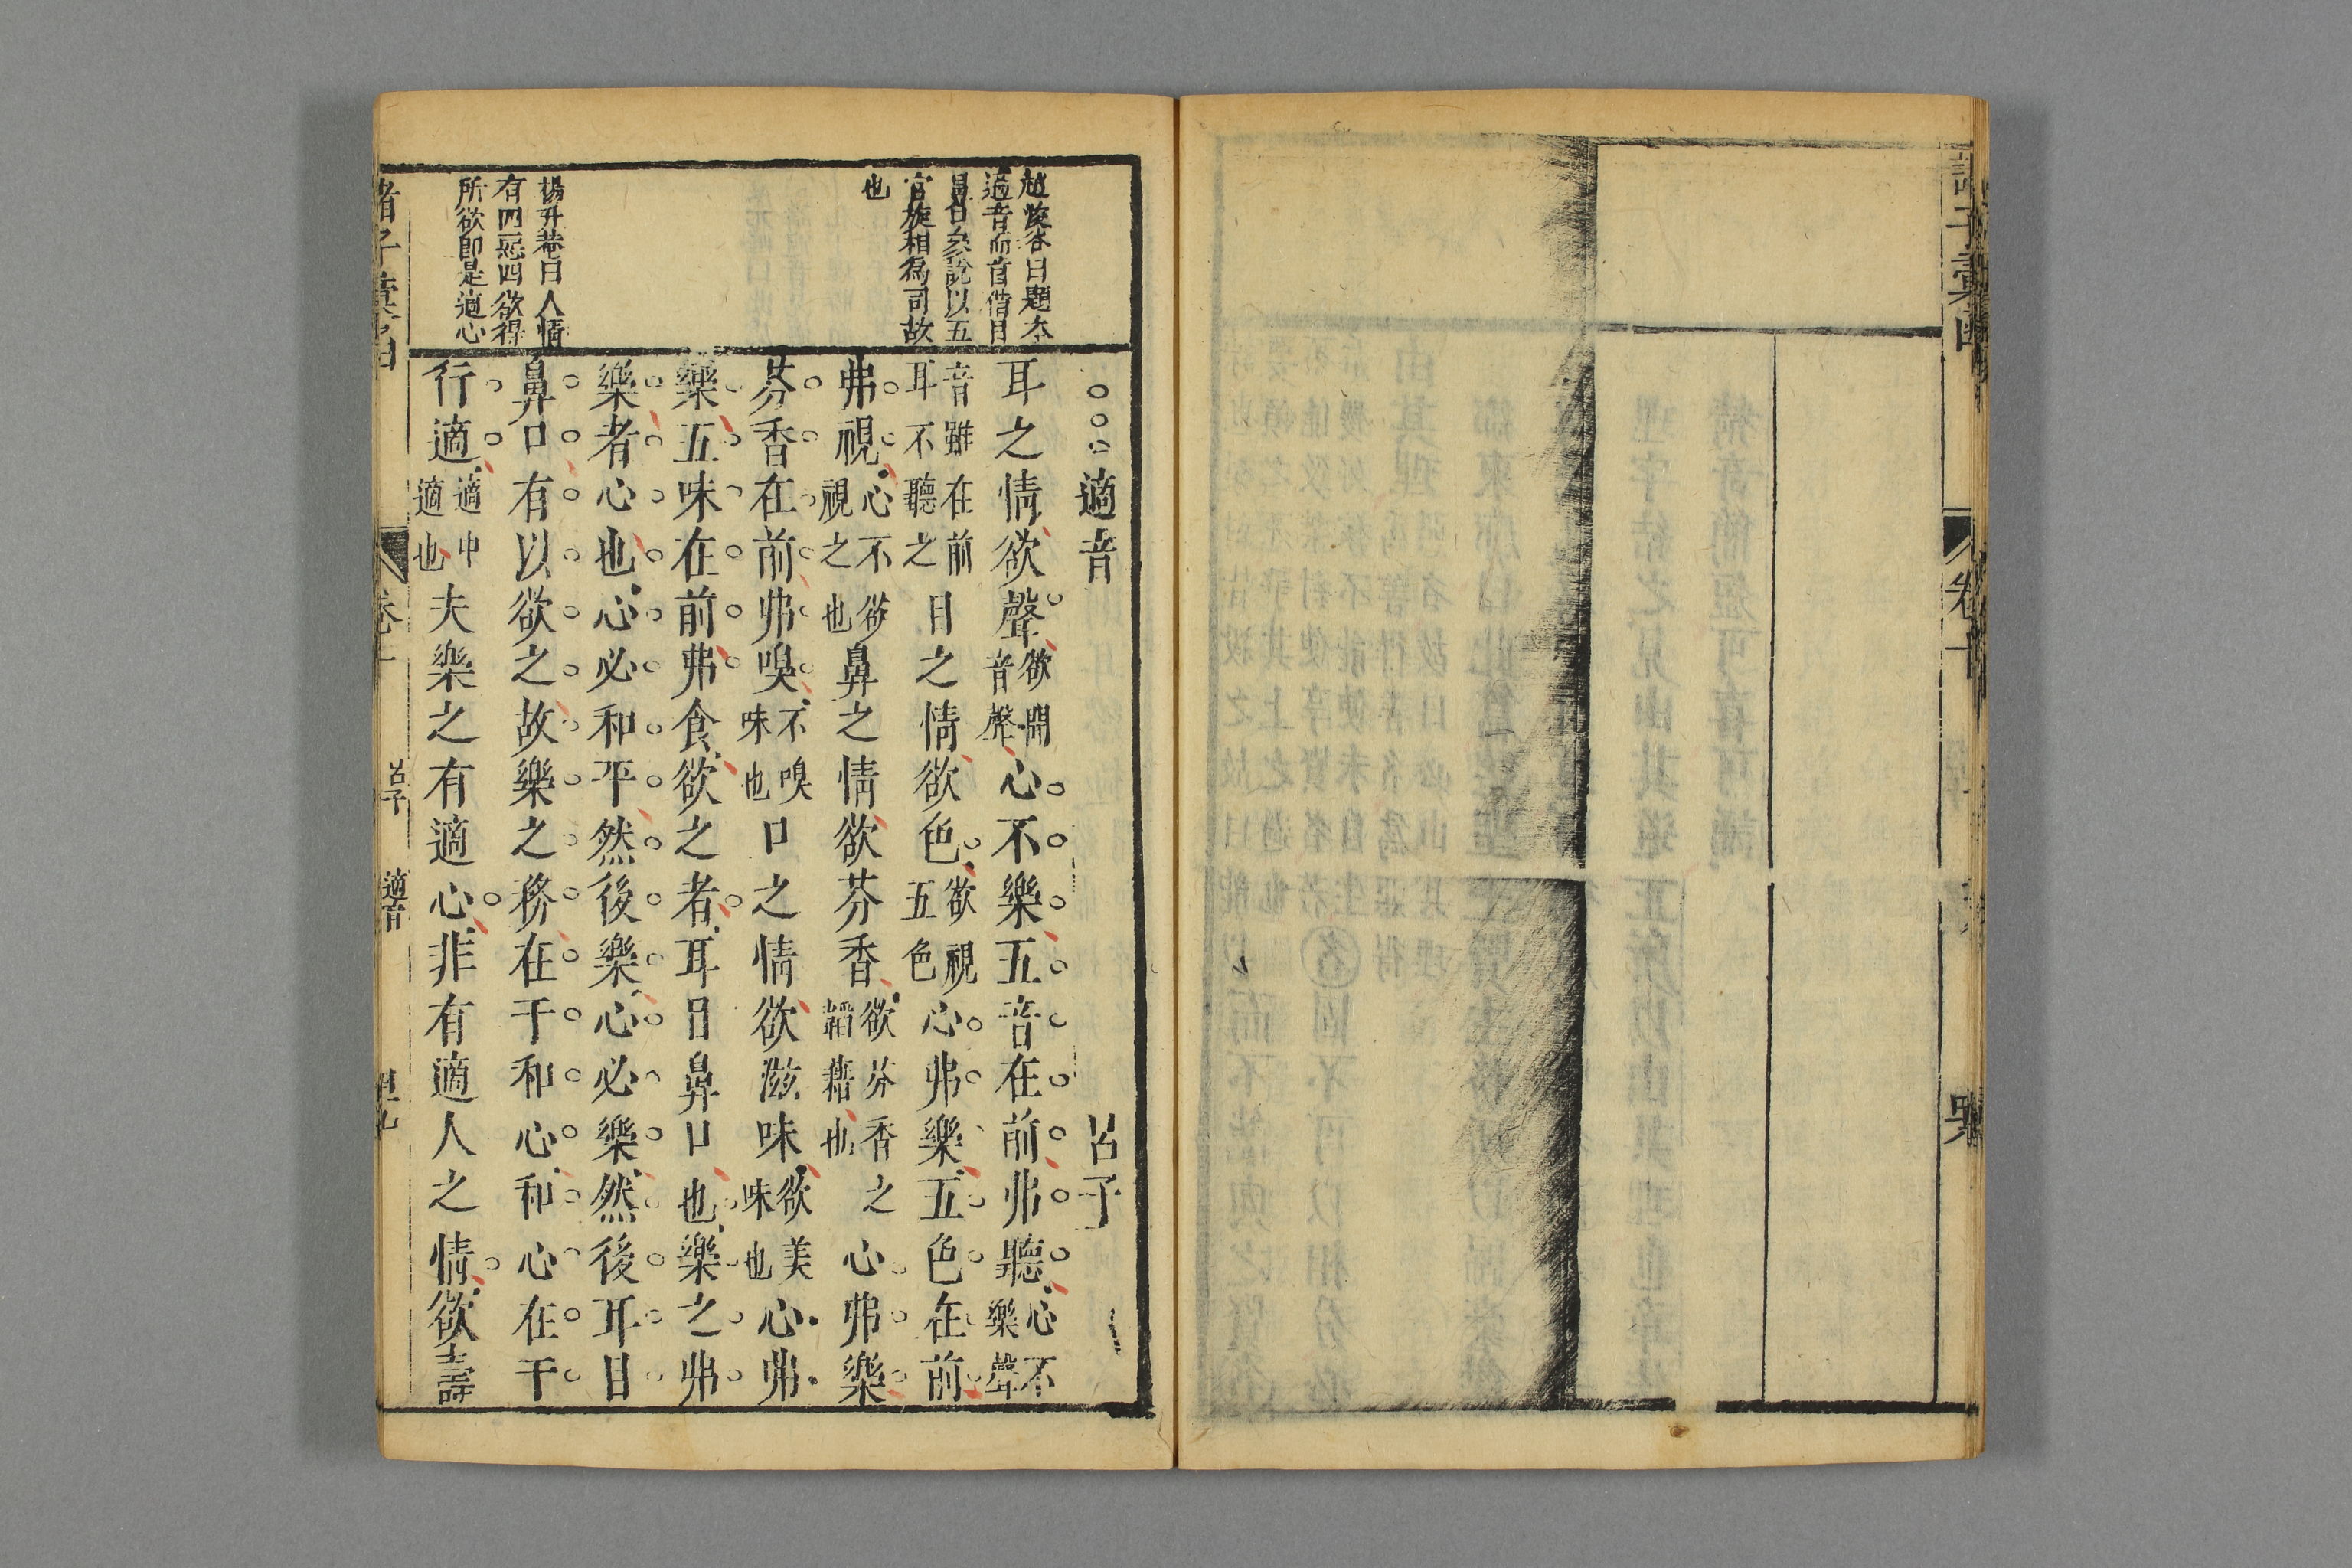 諸子彙函
卷十
適音
呂子
耳之情欲聲欲聞音聲心不樂五音在前弗聽心不樂聲
音雖在前耳不聽之目之情欲色欲視五色心弗樂五色在前
弗視心不欲視之也鼻之情欲芬香欲芬香之韜藉也心弗樂
芬香在前弗嗅不嗅味也口之情欲滋味欲美味也心弗
樂五味在前弗食欲之者耳目鼻口也樂之弗
樂者心也心必和平然後樂心必樂然後耳目
鼻口有以欲之故樂之務在于和心和心在于
行適適中適也夫樂之有適心非有適人之情欲壽
曰題本
適音而首借目
鼻口參說以五
官旋相為司故
也
楊升菴曰人情
有四惡四欲得
所欲即是適心
諸子彙函
呂子
適音